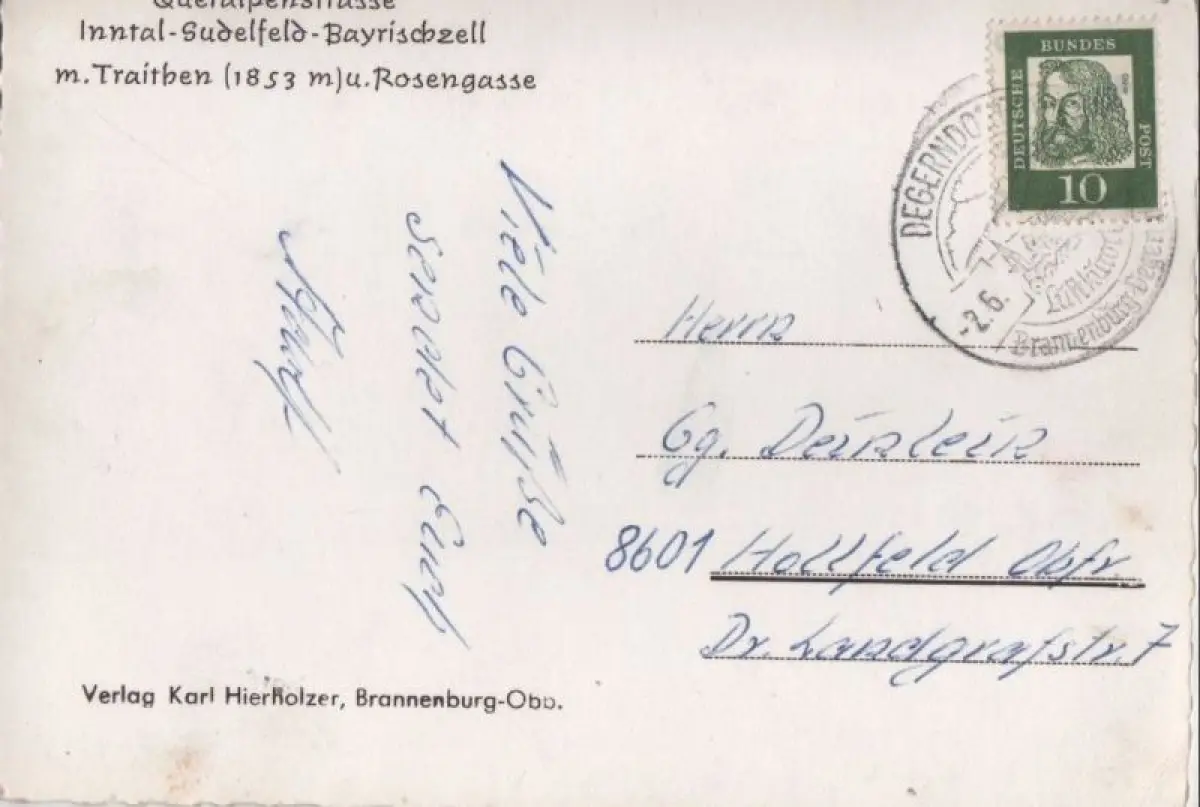 Queralpenstrasse
Inntal-Sudelfeld-Bayrischzell
m. Traithen (1853 m) u. Rosengasse
DEUTSCHE
BUNDES
POST
10
DEGERNDO
-2.6.
Luftkuror
Brannenburg-Degern
Viele Grüße
sendet Euch
Herrn
Gg. Deinlein
8601 Hollfeld Obfr.
Dr. Landgrafstr. 7
Verlag Karl Hierholzer, Brannenburg-Obb.